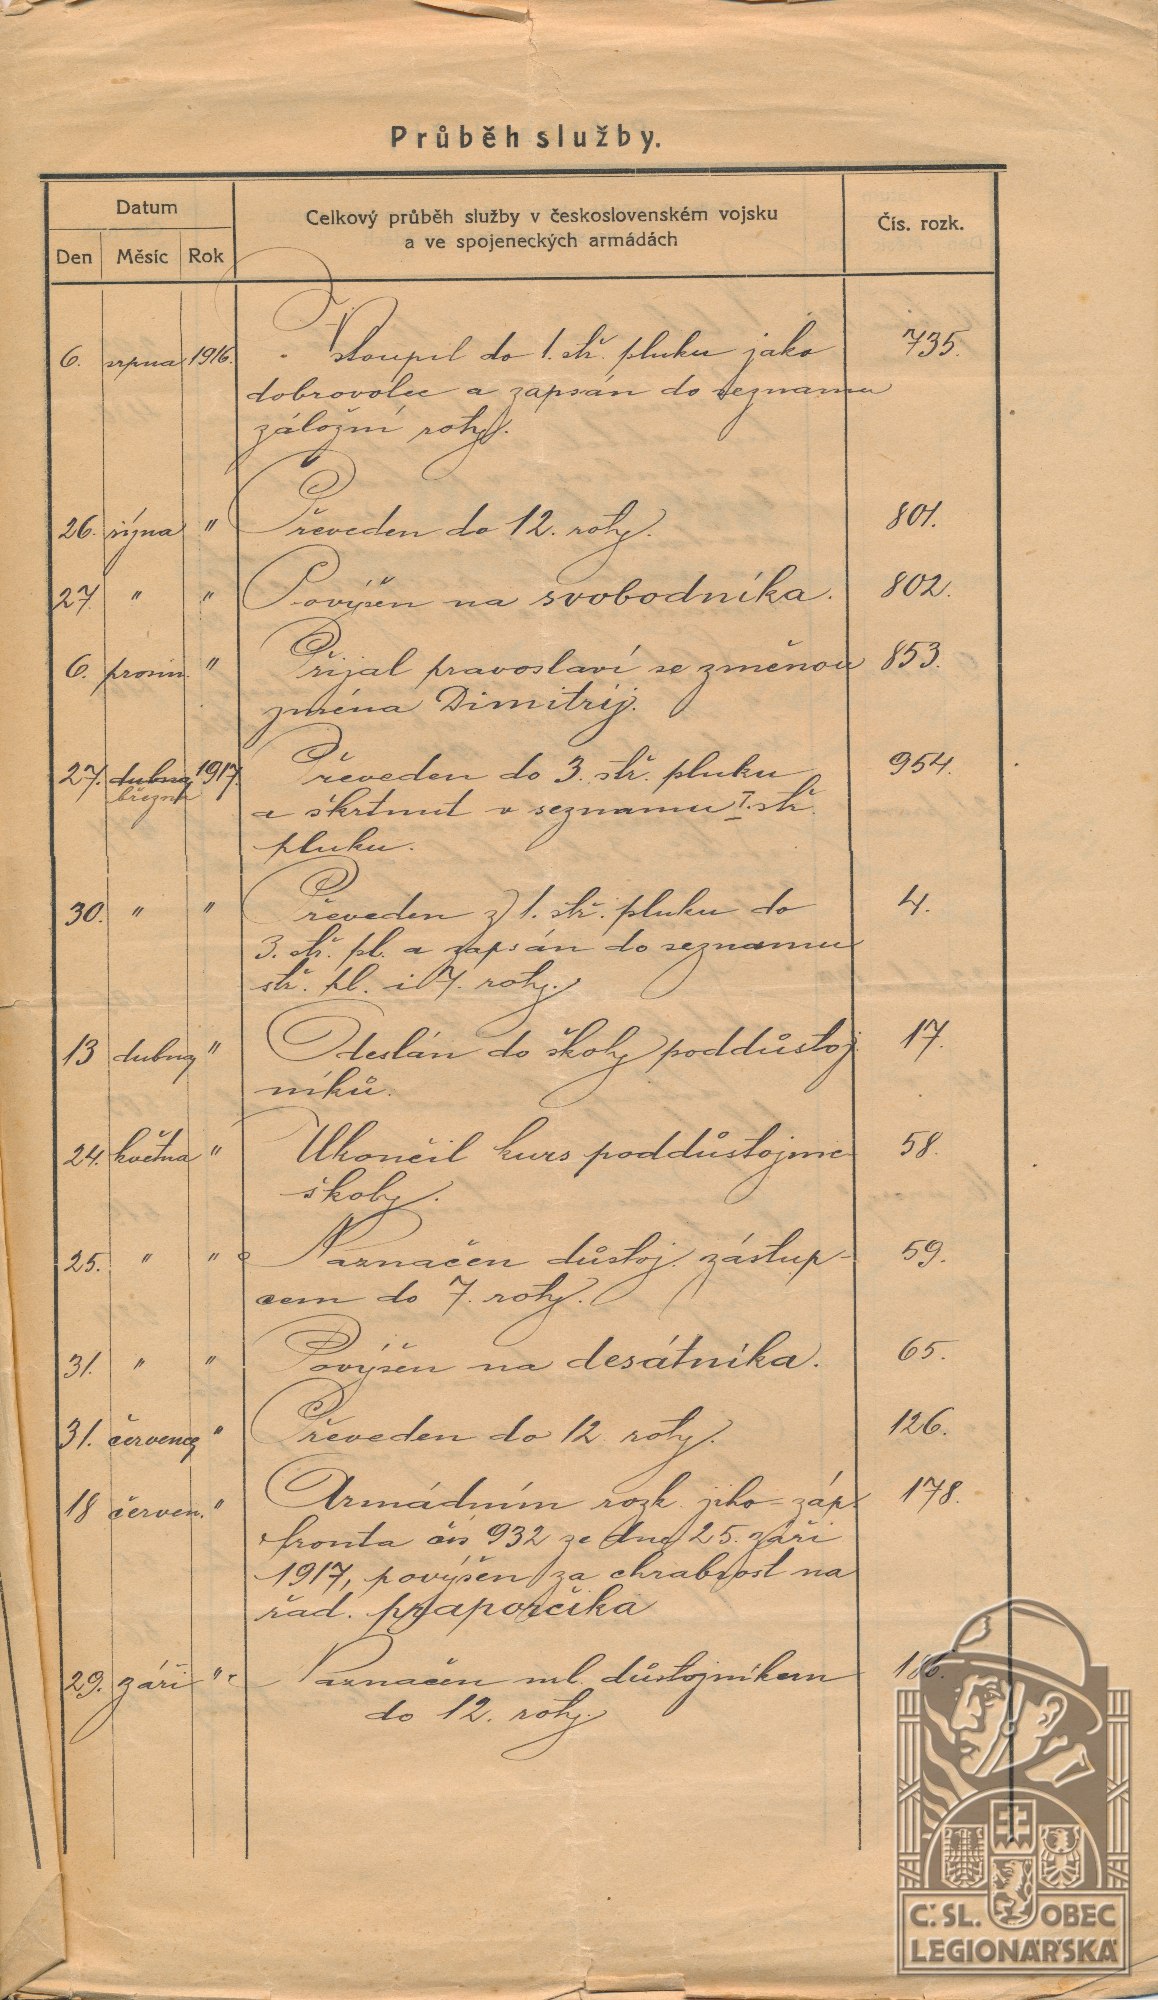 Průběh služby.
Datum
Celkový průběh služby v československém vojsku
a ve spojeneckých armádách
Čís. rozk.
Den Měsíc Rok
6. srpna 1916. Vstoupil do 1. stř. pluku jako 735.
dobrovolec a zapsán do seznamu
záložní roty.
26. října " Převeden do 12. roty. 801.
27 " " Povýšen na svobodníka. 802.
6. prosin. " Přijal pravoslaví se změnou 853.
jména Dimitrij.
27. dubna 1917. Převeden do 3. stř. pluku 954.
března a škrtnut v seznamu I. stř.
pluku.
30. " " Převeden z 1. stř. pluku do 4.
3. stř. pl. a zapsán do seznamu
stř. pl. i 7. roty.
13 dubna " Odeslán do školy poddůstoj 17.
níků.
24. května " Ukončil kurs poddůstojnic 58.
školy.
25. " " Naznačen důstoj. zástup- 59.
cem do 7. roty.
31. " " Povýšen na desátníka. 65.
31. července " Převeden do 12 roty. 126.
18 červen. " Armádním rozk. jiho-záp. 178.
fronta čís 932 ze dne 25. září
1917, povýšen za chrabrost na
řad. praporčíka
29. září " Naznačen ml. důstojníkem
do 12. roty.
Č.SL. OBEC
LEGIONÁŘSKÁ